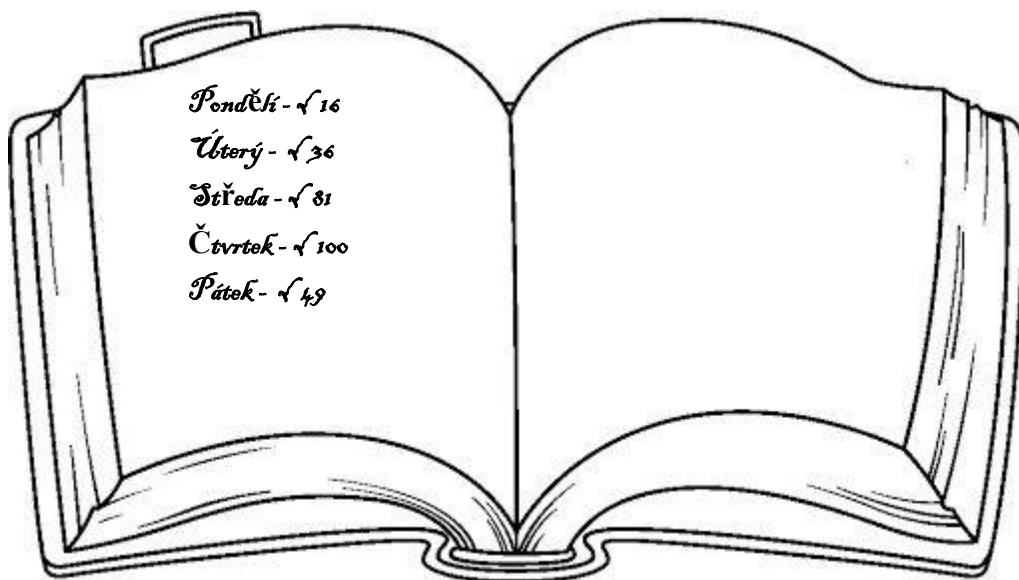 Pondělí - √ 16
Úterý - √ 36
Středa - √ 81
Čtvrtek - √ 100
Pátek - √ 49